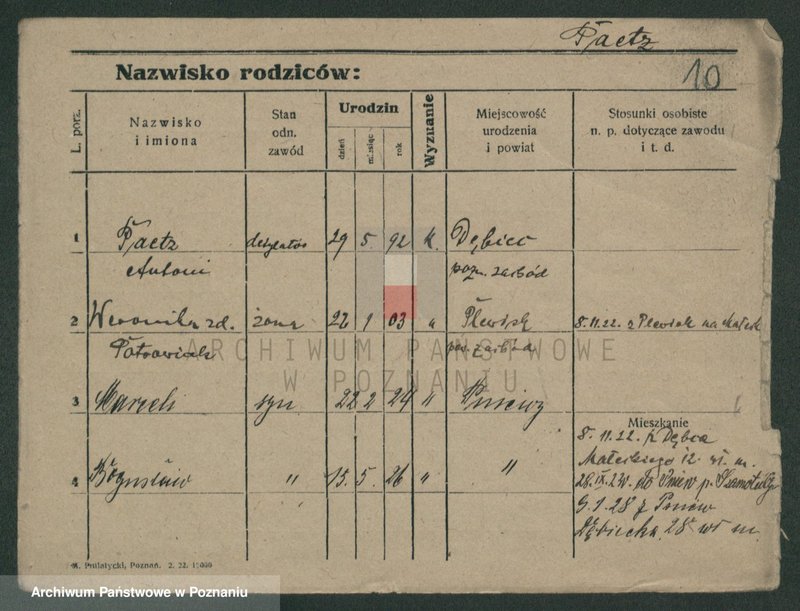 Paetz
Nazwisko rodziców:
10
L. porz.
Nazwisko
i imiona
Stan
odn.
zawód
Urodzin
dzień
miesiąc
rok
Wyznanie
Miejscowość
urodzenia
i powiat
Stosunki osobiste
n. p. dotyczące zawodu
i t. d.
1 Paetz 29 5. 92 k. Dębiec
Antoni pozn. zachód
2 Weronika zd. żona 22 1 03 " Plewisk 8.11.22. z Plewisk na Małeck
zachód
ARCHIWUM PAŃSTWOWE
W POZNANIU
3 Marceli syn 22 2 24 " Pniewy
Mieszkanie
8. 11. 22. z Dębca
Małeckiego 12 m.
4 Bogusław " 15. 5. 26 " "
28.IX.24. do Pniew p. Szamotuły
9.1.28 z Pniew
28 m.
Poznań. 2. 22.
Archiwum Państwowe w Poznaniu